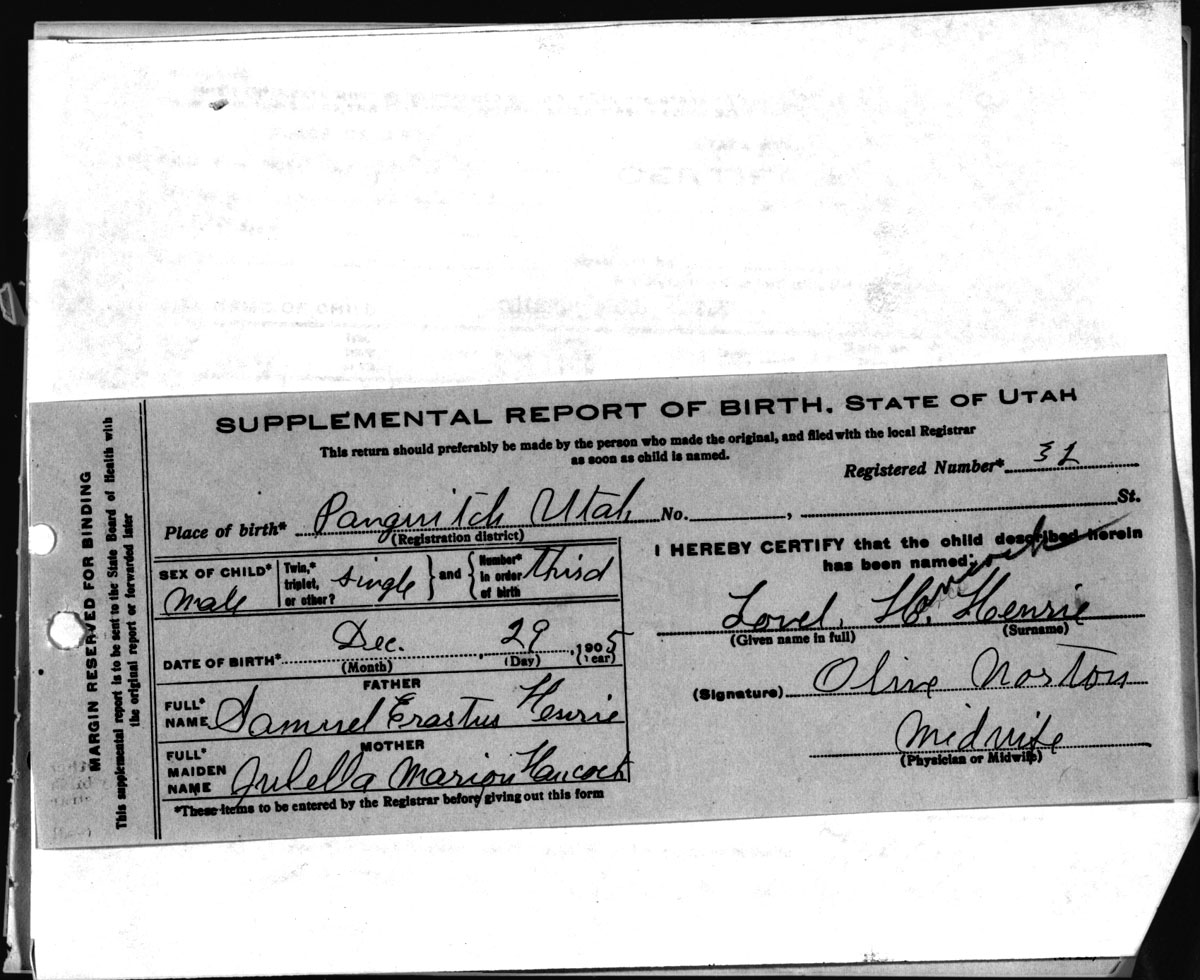 SUPPLEMENTAL REPORT OF BIRTH. STATE OF UTAH
This return should preferably be made by the person who made the original, and filed with the local Registrar
as soon as child is named.
Registered Number*
Place of birth* Panguitch Utah No. , St.
(Registration district)
SEX OF CHILD* Male
Twin,* triplet, or other? single
and
Number* in order of birth third
DATE OF BIRTH* Dec. , 29 , 1905
(Month) (Day) (Year)
FATHER
FULL* NAME Samuel Erastus Henrie
MOTHER
FULL* MAIDEN NAME Julella Marion Hancock
*These items to be entered by the Registrar before giving out this form
I HEREBY CERTIFY that the child described herein
has been named:
Lovel. H. Henrie
(Given name in full) (Surname)
(Signature) Olive Norton
Midwife
(Physician or Midwife)
MARGIN RESERVED FOR BINDING
This supplemental report is to be sent to the State Board of Health with
the original report or forwarded later